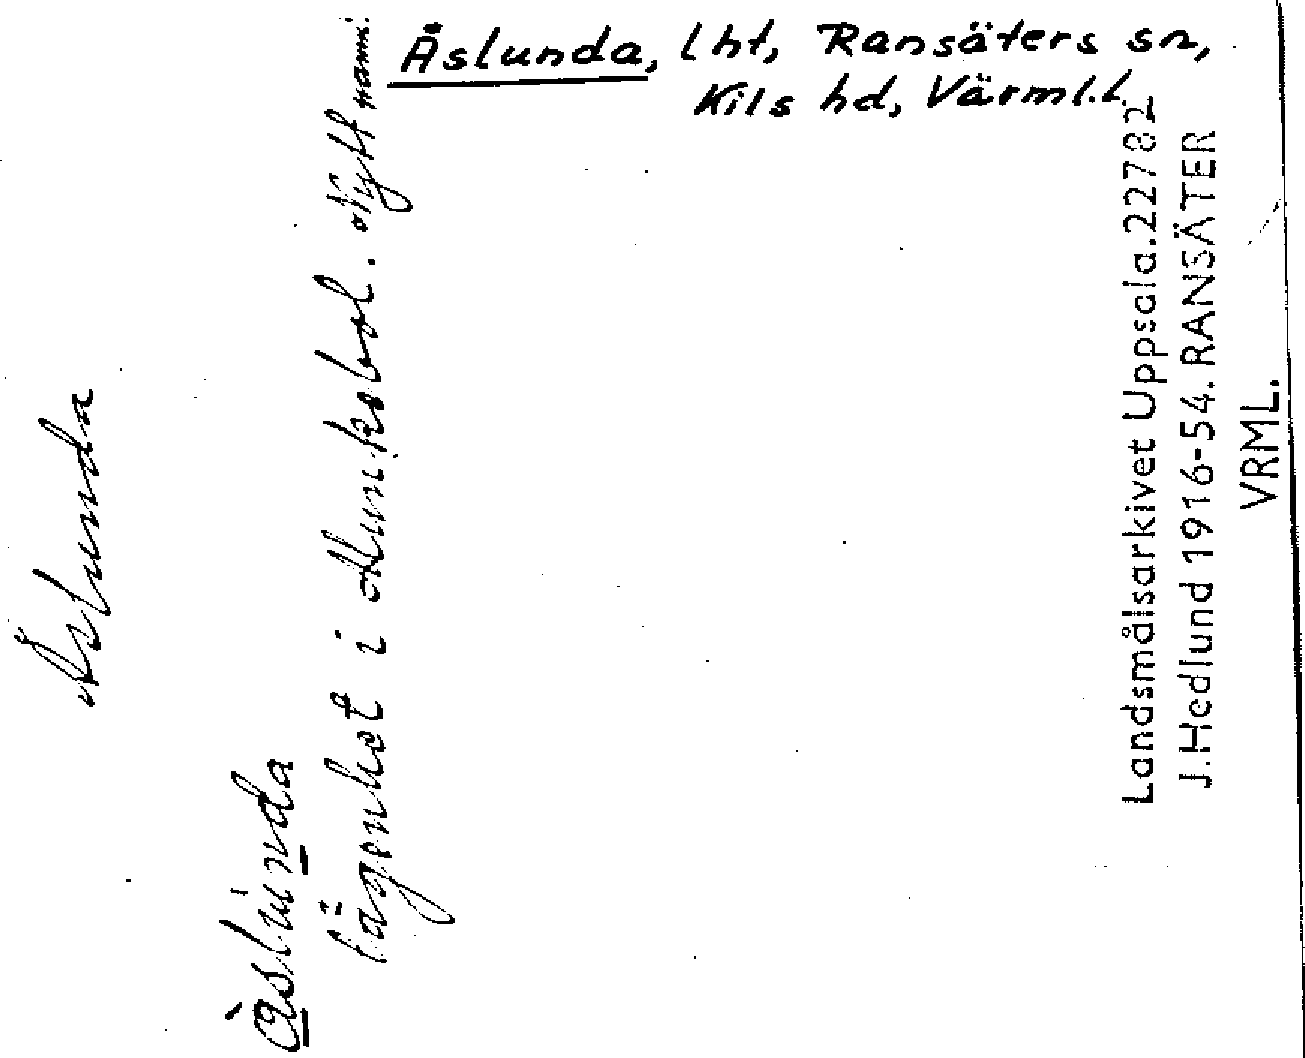 Åslunda, lht, Ransäters sn,
Kils hd, Värml.l.
Åslunda
àslúnda
lägenhet i Munkebol. Nytt namn.
Landsmålsarkivet Uppsala.22782
J.Hedlund 1916-54. RANSÄTER
VRML.